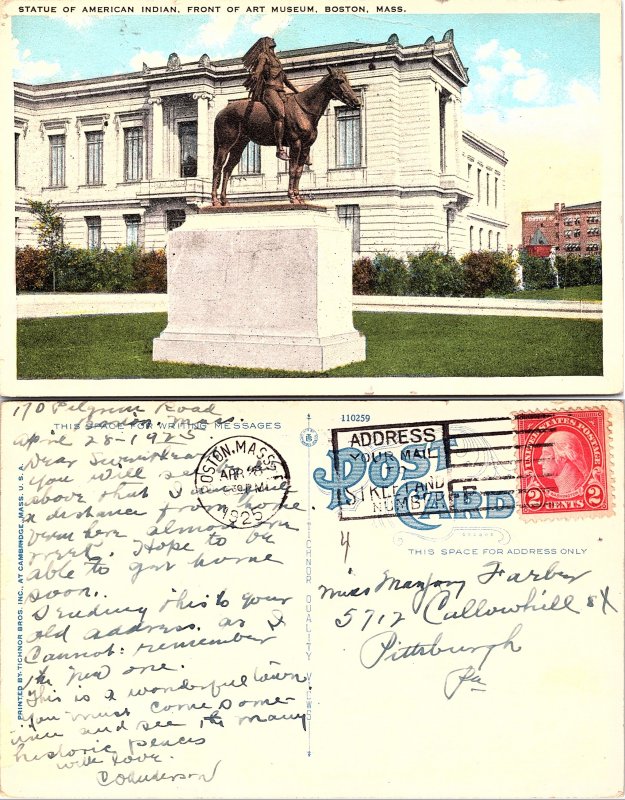 STATUE OF AMERICAN INDIAN, FRONT OF ART MUSEUM, BOSTON, MASS.
170 Pilgrim Road
THIS SPACE FOR WRITING MESSAGES
April 28-1925
Dear Sweetheart
You will see
above that I am
a distance from home
been here almost one
week. Hope to be
able to get home
soon.
Sending this to your
old address as I
Cannot remember
the new one.
This is a wonderful town
You must come some-
time and see the many
historic places
with love.
PRINTED BY TICHNOR BROS. INC., AT CAMBRIDGE, MASS. U.S.A.
BOSTON, MASS.
APR 28
1925
TICHNOR QUALITY VIEWS
110259
POST CARD
ADDRESS
YOUR MAIL
TO
STREET AND
NUMBER
UNITED STATES POSTAGE
2 CENTS 2
THIS SPACE FOR ADDRESS ONLY
4
Miss Marjory Farber
5712 Callowhill St
Pittsburgh
Pa